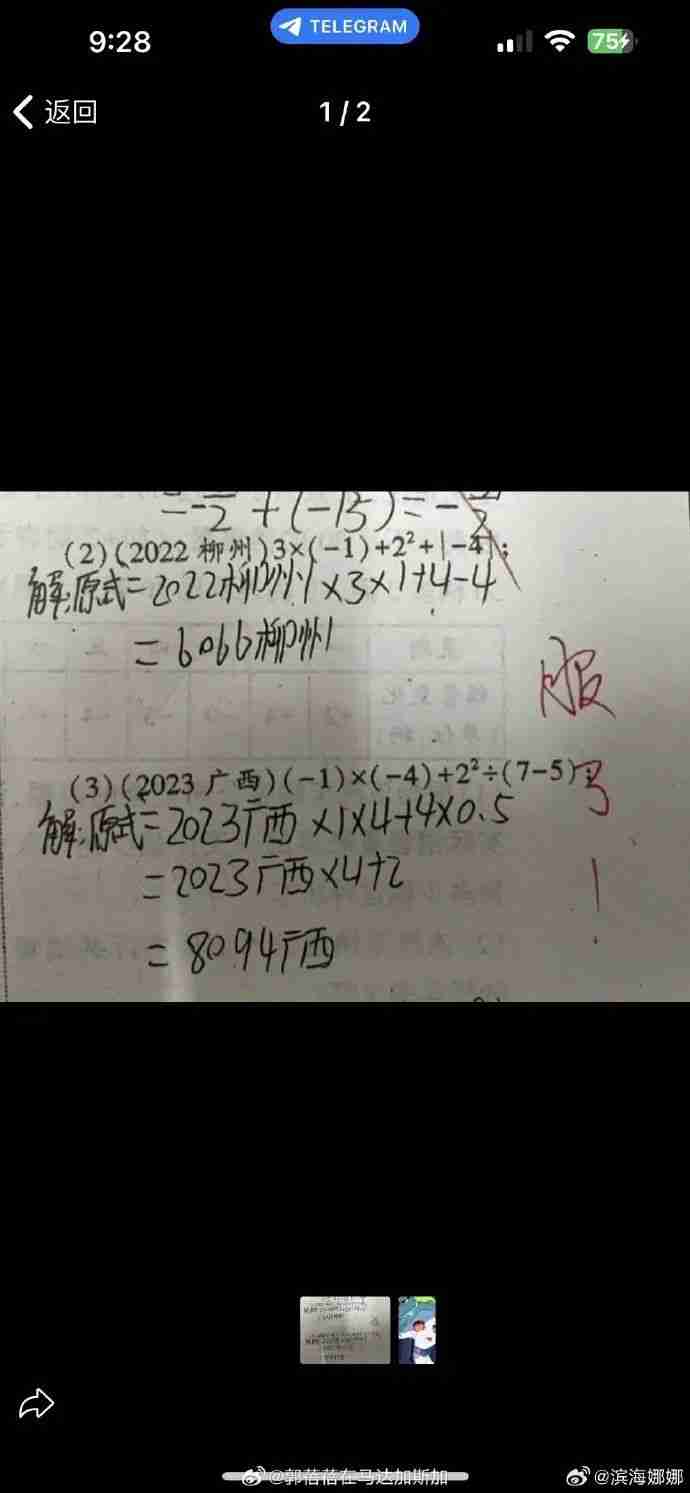 9:28
TELEGRAM
75
返回
1/2
(2)(2022 柳州)3×(-1)+2²+|-4|;
解:原式=2022柳州×3×1+4-4
=6066柳州
服
(3)(2023 广西)(-1)×(-4)+2²÷(7-5).
了
解:原式=2023广西×1×4+4×0.5
=2023广西×4+2
!
=8094广西
@郭蓓蓓在马达加斯加
@滨海娜娜